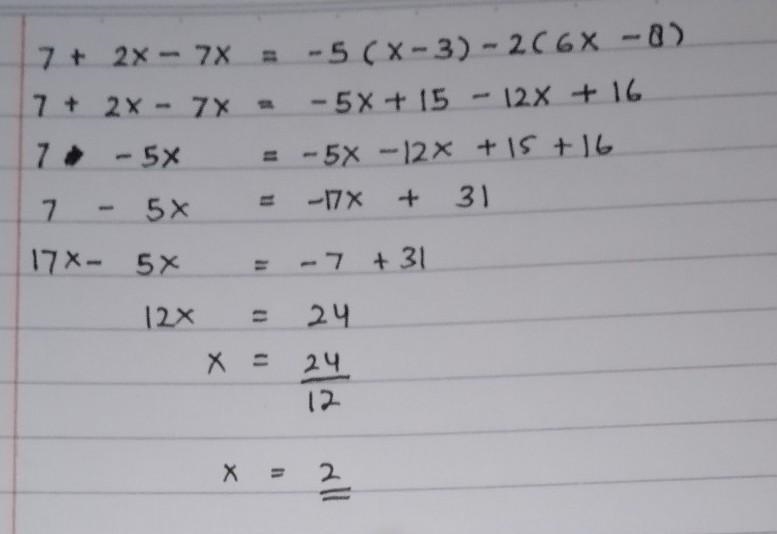 7 + 2x - 7x = -5(x-3) - 2(6x - 8)
7 + 2x - 7x = -5x + 15 - 12x + 16
7 - 5x = -5x - 12x + 15 + 16
7 - 5x = -17x + 31
17x - 5x = -7 + 31
12x = 24
x = 24
12
x = 2